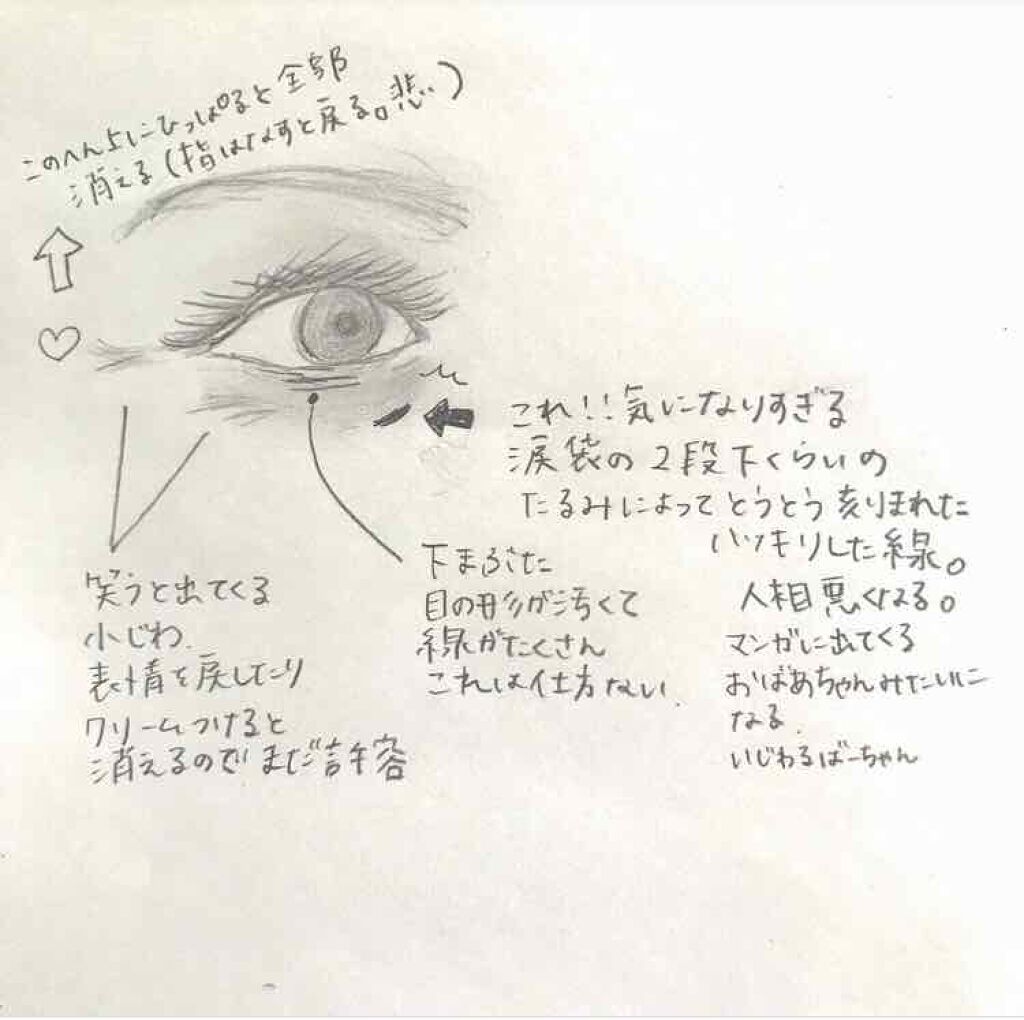 このへん上にひっぱると全部
消える(指はなすと戻る。悲..)
これ!!気になりすぎる
涙袋の2段下くらいの
たるみによってとうとう刻まれた
ハッキリした線。
人相悪くなる。
マンガに出てくる
おばあちゃんみたいに
なる.
いじわるばーちゃん
下まぶた
目の形が汚くて
線がたくさん
これは仕方ない.
笑うと出てくる
小じわ.
表情を戻したり
クリームつけると
消えるのでまだ許容